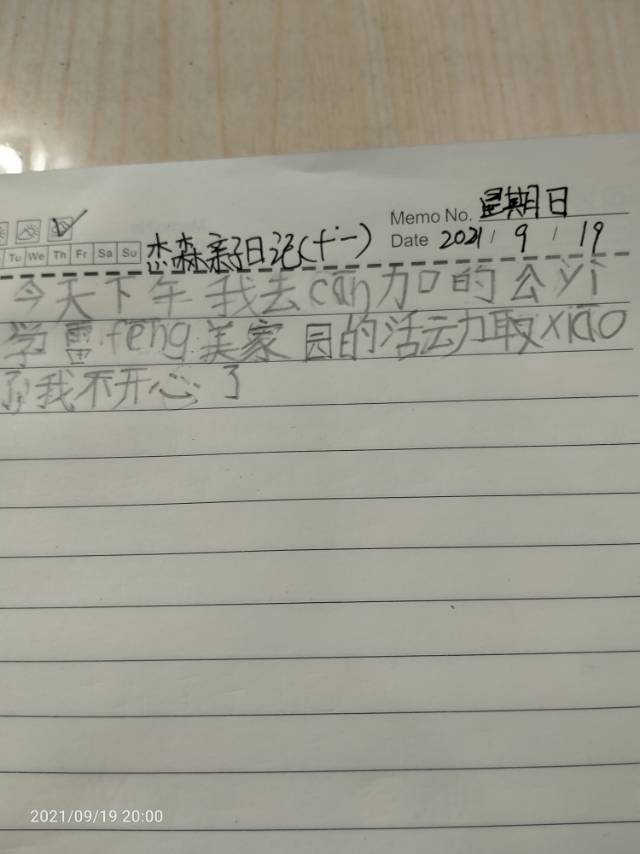 Memo No. 星期日
Tu We Th Fr Sa Su 杰森亲子日记(十一) Date 2021 / 9 / 19
今天下午我去cān加的公yì
学雷feng美家园的活动取xiāo
了我不开心了
2021/09/19 20:00